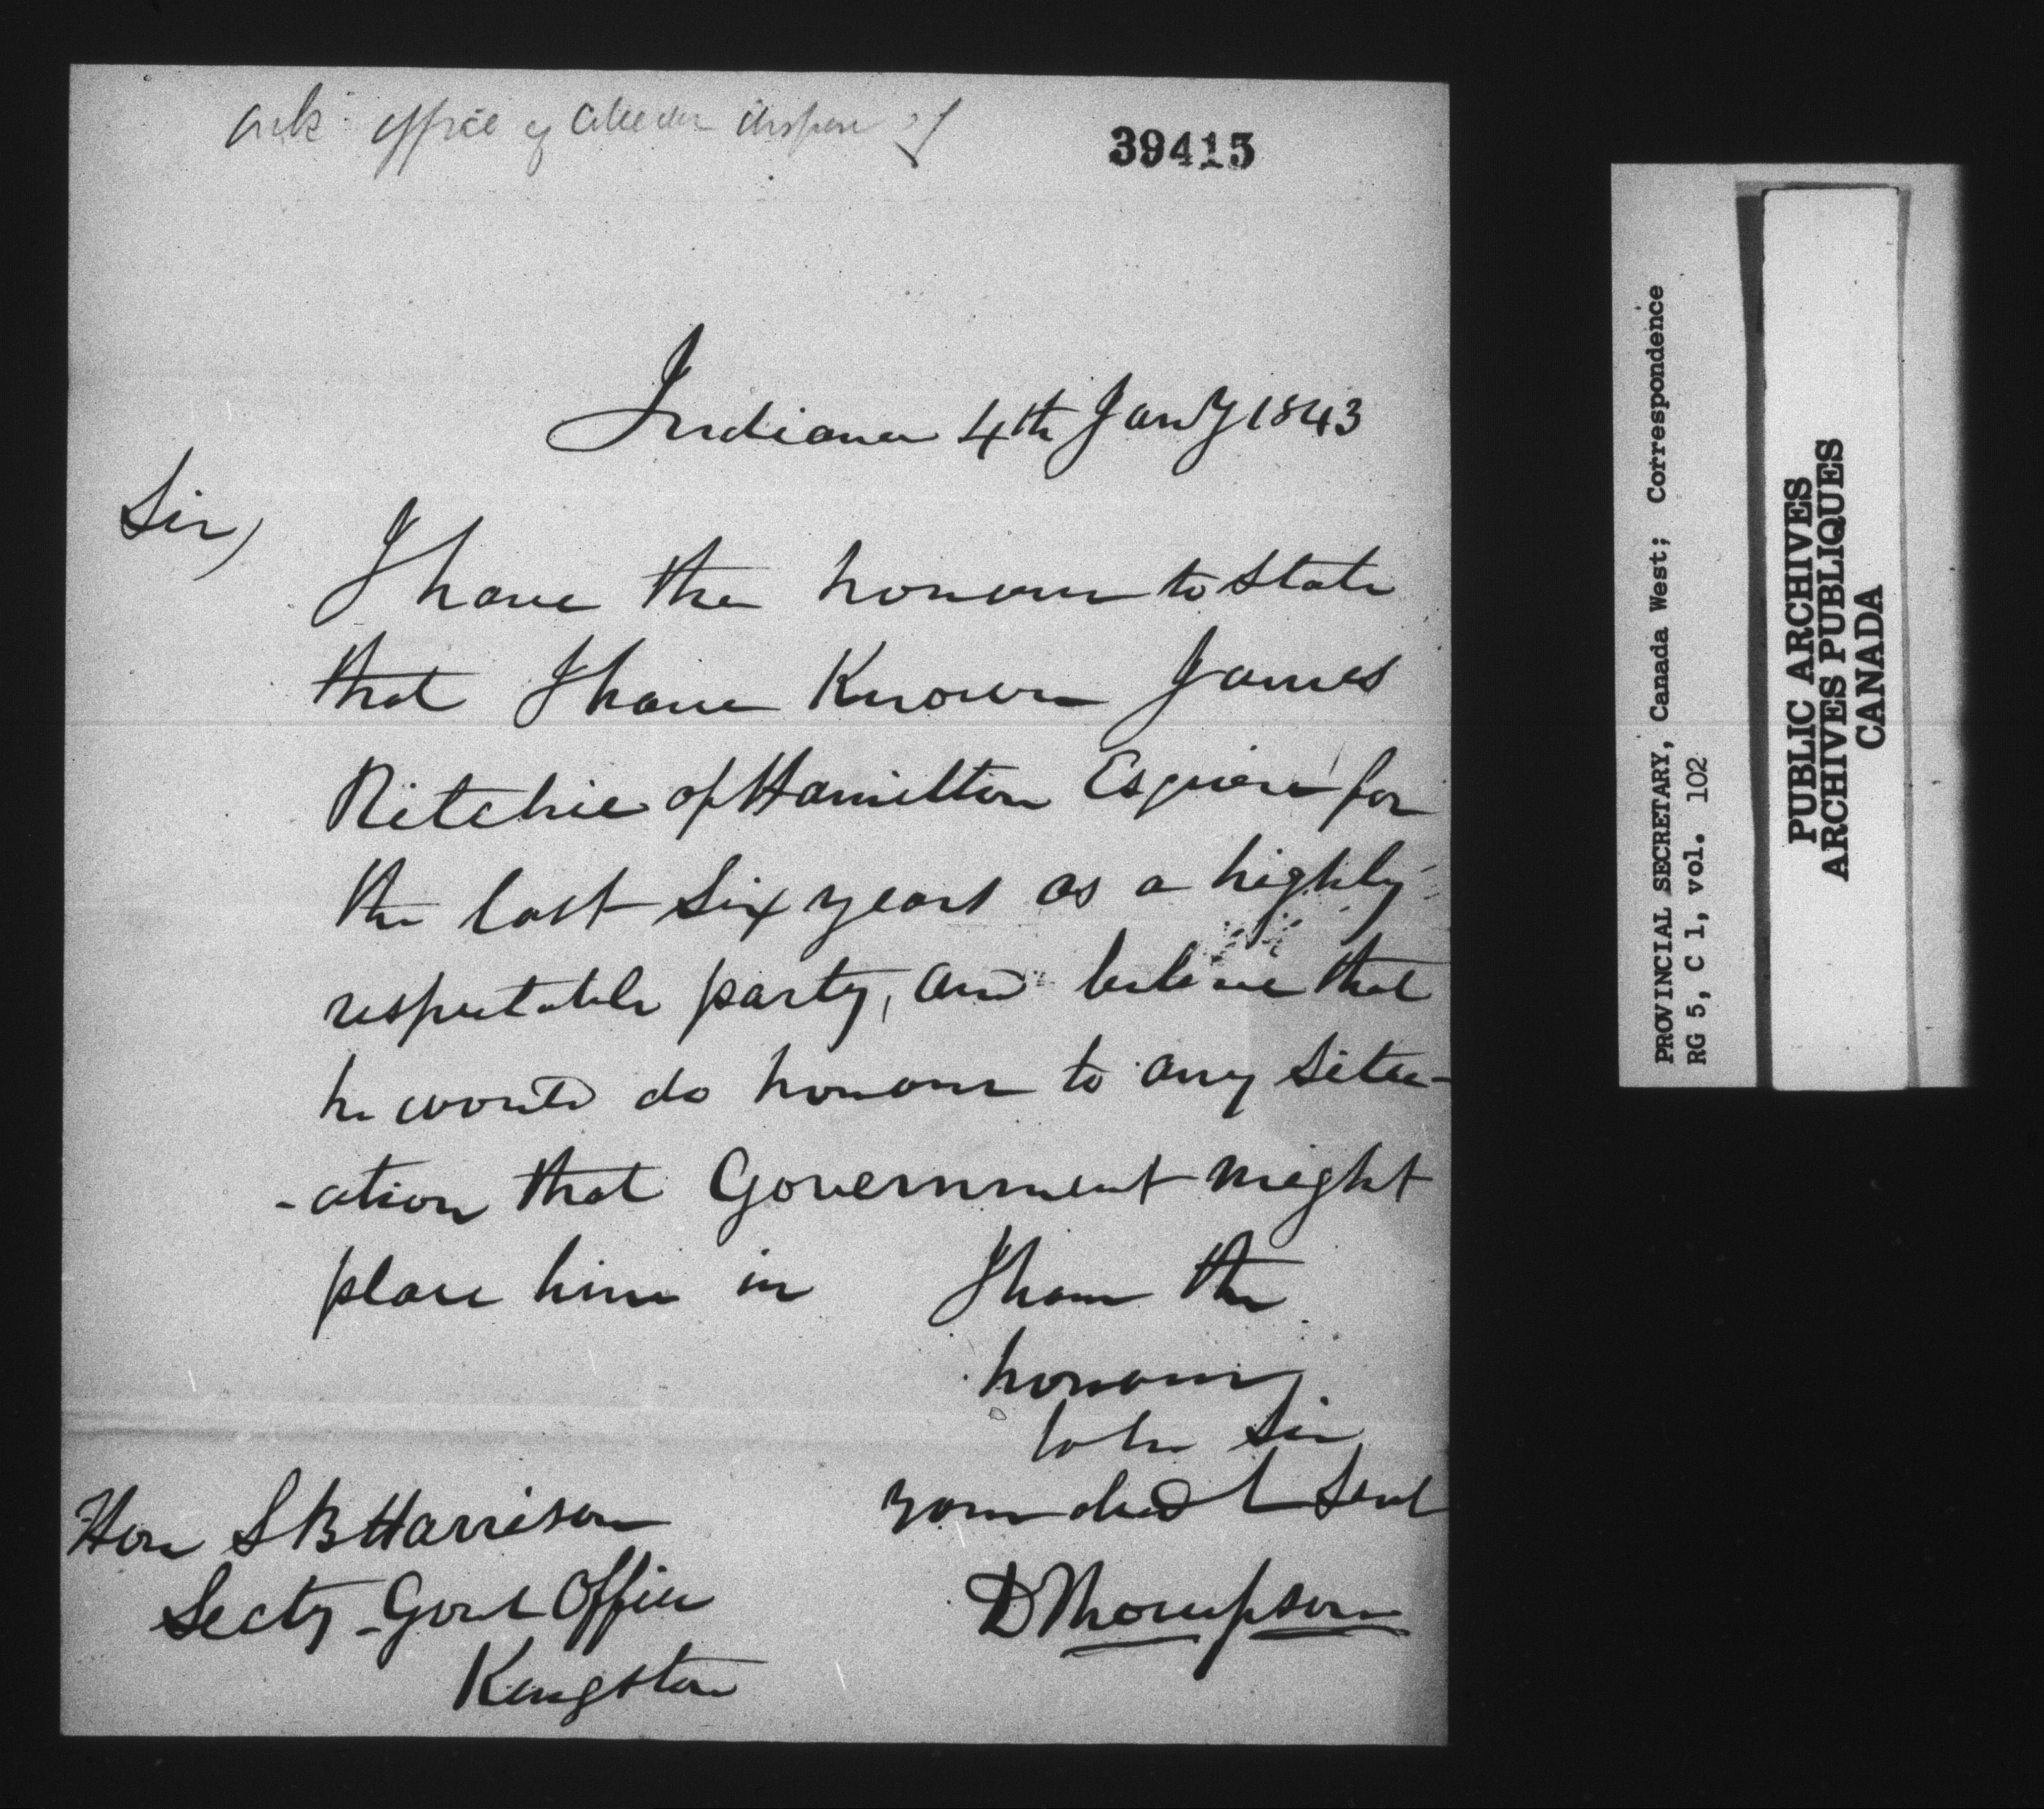 office of
39415
Indiana 4th Jany 1843
Sir,
I have the honour to state
that I have Known James
Ritchie of Hamilton Esquire for
the last six years as a highly
respectable party, and believe that
he would do honour to any situ-
-ation that Government might
place him in I have the
honour
to be Sir
your obed t Servt
D Thompson
Hon S B Harrison
Secty - Govt Office
Kingston
PROVINCIAL SECRETARY, Canada West; Correspondence
RG 5, C 1, vol. 102
PUBLIC ARCHIVES
ARCHIVES PUBLIQUES
CANADA